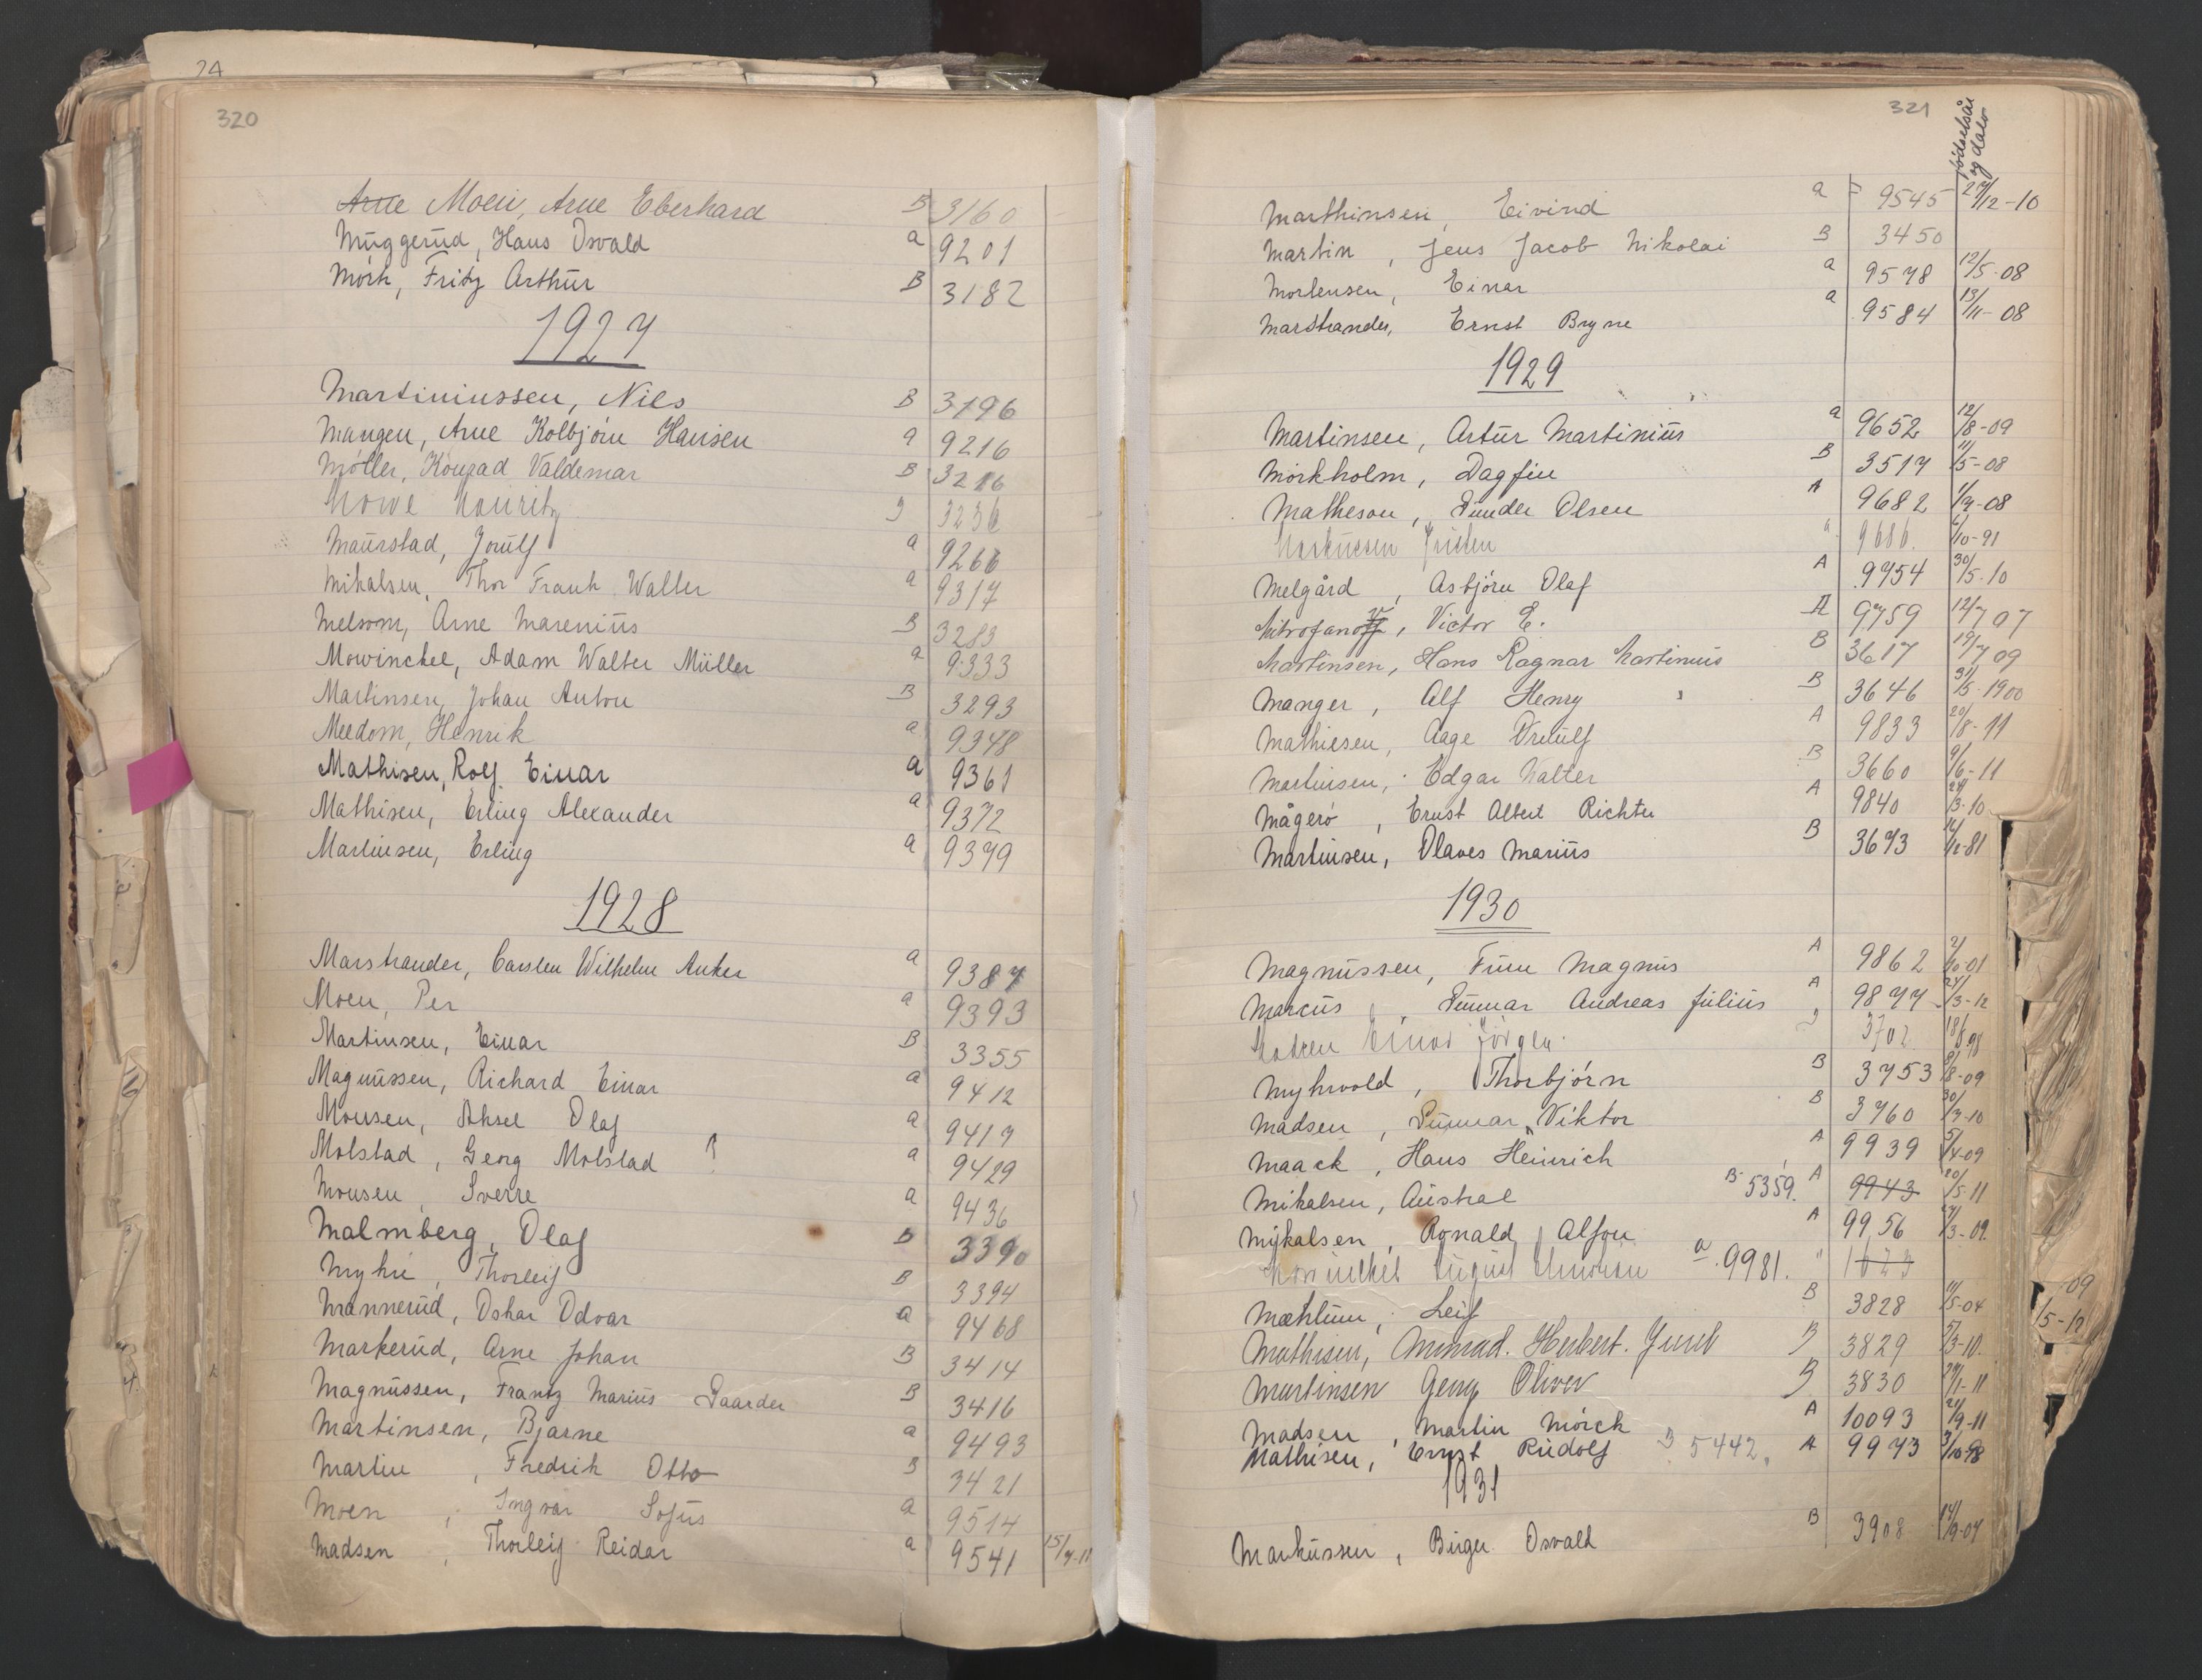 24
320
Arne Moen, Arne Eberhard B 3160
Muggerud, Hans Osvald a 9201
Mörk, Fritz Arthur B 3182
1927
Martiniussen, Nils B 3196
Mangen, Arne Kolbjörn Hansen a 9216
Möller, Konrad Valdemar B 3216
Mowe Mouritz B 3236
Maurstad, Jorulf a 9266
Mikalsen, Thor Frank Walter a 9317
Melsom, Arne Marenius B 3283
Mowinckel, Adam Walter Müller a 9333
Martinsen, Johan Anton B 3293
Meedom, Henrik a 9348
Mathisen, Rolf Einar a 9361
Mathisen, Erling Alexander a 9372
Martinsen, Erling a 9379
1928
Marstrander, Carsten Wilhelm Anker a 9387
Moen, Per a 9393
Martinsen, Einar B 3355
Magnussen, Richard Einar a 9412
Monsen, Aksel Olaf a 9417
Molstad, Georg Molstad a 9429
Monsen, Sverre a 9436
Malmberg, Olaf B 3390
Myhre, Thorleif B 3394
Mannerud, Oskar Odvar a 9468
Markerud, Arne Johan B 3414
Magnussen, Frantz Marius Gaarder B 3416
Martinsen, Bjarne a 9493
Martin, Fredrik Otto B 3421
Moen, Ingvar Sofus a 9514
Madsen, Thorleif Reidar a 9541 15/7-11
321
fødselsår og dato
Marthinsen, Eivind a 9545 27/12-10
Martin, Jens Jacob Nikolai B 3450
Mortensen, Einar a 9578 12/5-08
Marstrander, Ernst Bryne a 9584 13/11-08
1929
Martinsen, Artur Martinius a 9652 12/8-09
Mörkholm, Dagfin B 3517 11/5-08
Matheson, Gunder Olsen A 9682 1/9-08
Markussen " 9686 6/10-91
Melgård, Asbjörn Olaf A 9754 30/5-10
Mitrofanoff, Victor E. A 9759 12/7 07
Martinsen, Hans Ragnar Martinius B 3617 19/7 09
Manger, Alf Henry B 3646 31/5-1900
Mathiesen, Aage A 9833 20/8-11
Martinsen, Edgar Walter B 3660 9/6-11
Mågerö, Ernst Albert Richter A 9840 29/3-10
Martinsen, Olaves Marius B 3673
1930
Magnussen, Finn Magnus A 9862 2/10-01
Marcus, Gunnar Andreas Julius A 9877 24/3-12
Madsen Einar Jörgen 3702 18/8 98
Myhrvold, Thorbjörn B 3753 8/8-09
Madsen, Gunnar Viktor B 3760 30/3-10
Maack, Hans Heinrich A 9939 5/4-09
Mikalsen, Austral B 5359. A 9943 20/5-11
Mykalsen, Ronald Alfon A 9956 27/3-09
Mowinckel August a 9981. "
Mæhlum, Leif B 3828 11/5-04
Mathisen, Herbert. B 3829 5/3-10
Martinsen Georg Oliver B 3830 29/1-11
Madsen, Martin Mörck A 10093 21/9-11
Mathisen, Ernst Rudolf B 5442. A 9973 3/10-98
1931
Markussen, Birger Osvald B 3908 14/9-07
-09
/5-12